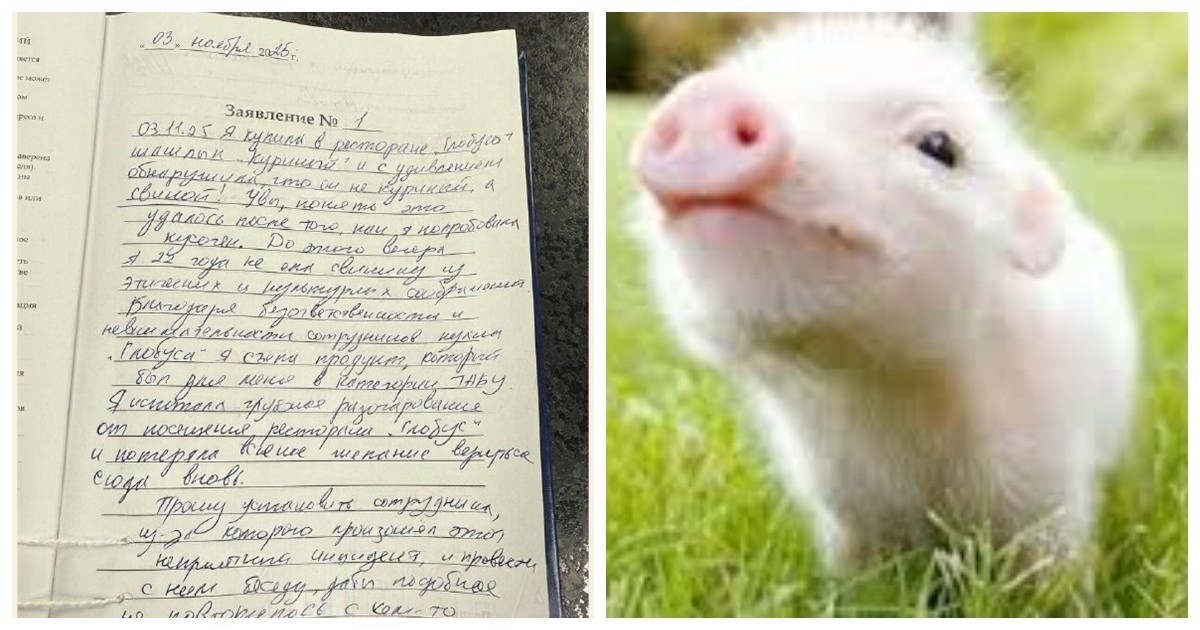 ИЙ
яется
с может
ом
роса и
аверена
аля).
ны
в или
ное
еть
стве
ация
й
ся
ов
„03„ ноября 2025 г.
Заявление № 1
03.11.25 Я купила в ресторане „Глобус"
шашлык „Куриный" и с удивлением
обнаружила, что он не куриный, а
свиной! Увы, понять это
удалось после того, как я попробовала
кусочек. До этого вечера
я 22 года не ела свинину из
этических и культурных соображений.
Благодаря безответственности и
невнимательности сотрудников кухни
„Глобуса" я съела продукт, который
был для меня в категории ТАБУ.
Я испытала глубокое разочарование
от посещения ресторана „Глобус"
и потеряла всякое желание вернуться
сюда вновь.
Прошу установить сотрудника,
из-за которого произошёл этот
неприятный инцидент, и провести
с ним беседу, дабы подобное
не повторилось с кем-то